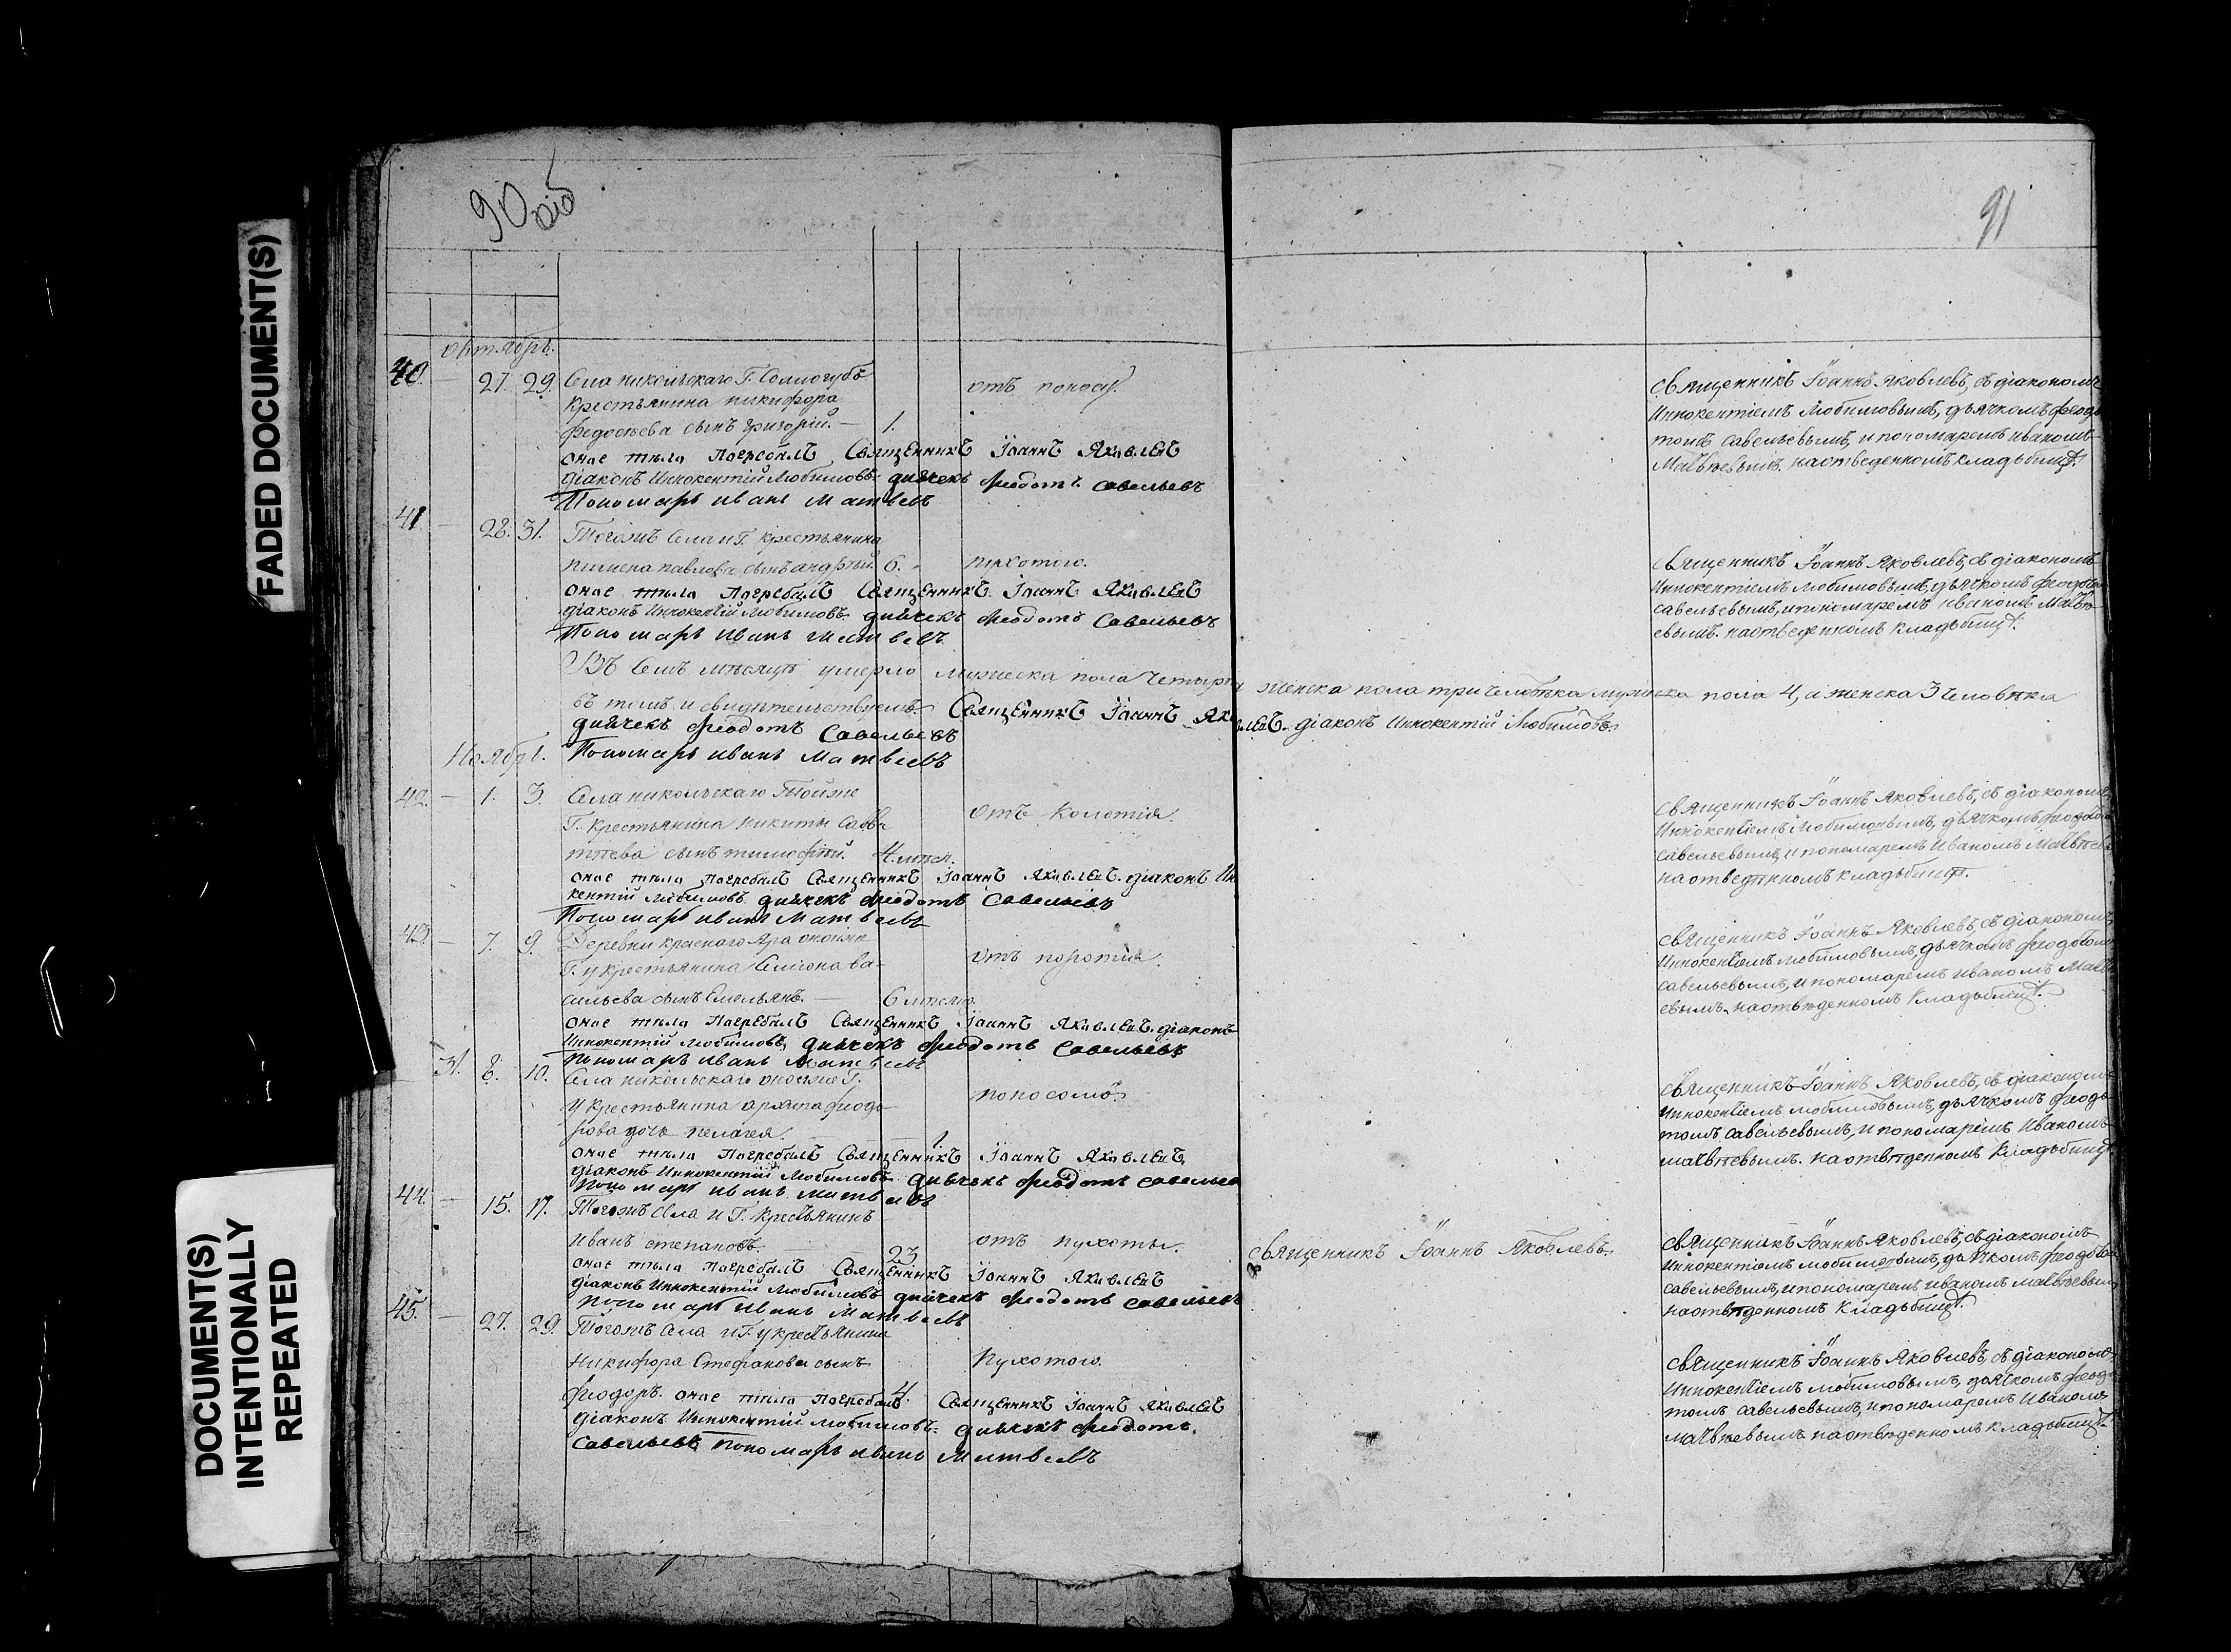 90 об
91
FADED DOCUMENT(S)
DOCUMENT(S)
INTENTIONALLY
REPEATED
октябрь.
40. 27. 29. Села никольскаго Г.
крестьянина никифора
Федосѣева сынъ григорій. 1. отъ поносу.
оное тѣло погребалъ Священникъ Іоаннъ Яковлевъ
діаконъ Иннокентій Любимовъ дьячекъ Феодотъ Савельевъ
Пономарь иванъ Матвеевъ
Священникъ Іоаннъ Яковлевъ, съ діакономъ
Иннокентіемъ Любимовымъ, дьячкомъ феодо
томъ Савельевымъ, и пономаремъ иваномъ
Матвѣевымъ. на отведенномъ кладьбищѣ.
41 28. 31. Тогожъ Села и Г. крестьянина
пимена павлова сынъ андрѣй. 6. пухотою.
оное тѣло погребалъ Священникъ Іоаннъ Яковлевъ
діаконъ Иннокентій Любимовъ дьячекъ Феодотъ Савельевъ
Пономарь иванъ Матвеевъ
Священникъ Іоаннъ Яковлевъ, съ діакономъ
Иннокентіемъ Любимовымъ, дьячкомъ феодотомъ
савельевымъ, и пономаремъ иваномъ Матвѣ
евымъ. на отведенномъ кладьбищѣ.
Въ Семъ мѣсяцѣ умерло мужеска пола четыре женска пола три человѣка мужеска пола 4, а женска 3 человѣка
въ томъ и свидѣтельствуемъ. Священникъ Іоаннъ Яковлевъ. діаконъ Иннокентій Любимовъ.
дьячекъ Феодотъ Савельевъ
Пономарь иванъ Матвеевъ
Ноябрь.
42. 1. 3. Села никольскаго Тойже
Г. крестьянина никиты Савва
тѣева сынъ тимофѣй. 4. мѣся. отъ колотія.
оное тѣло погребалъ Священникъ Іоаннъ Яковлевъ. діаконъ Ин
кентій Любимовъ. дьячекъ Феодотъ Савельевъ
Пономарь иванъ Матвеевъ
Священникъ Іоаннъ Яковлевъ, съ діакономъ
Иннокентіемъ Любимовымъ, дьячкомъ феодотом
савельевымъ, и пономаремъ Иваномъ Матвѣев
на отведенномъ кладьбищѣ.
43. 7. 9. Деревни краснаго Яра
Г. у крестьянина Симона ва
сильева сынъ Емельянъ. 6 мѣсяц.
оное тѣло погребалъ Священникъ Іоаннъ Яковлевъ. діаконъ
Иннокентій Любимовъ, дьячекъ Феодотъ Савельевъ
Пономарь иванъ Матвеевъ
Священникъ Іоаннъ Яковлевъ, съ діакономъ
Иннокентіемъ Любимовымъ, дьячкомъ феодотом
савельевымъ, и пономаремъ иваномъ Матвѣ
евымъ. на отведенномъ кладьбищѣ.
31. 8. 10. Села никольскаго Г.
у крестьянина архипа феодо
рова дочь пелагея. 1. поносомъ.
оное тѣло погребалъ Священникъ Іоаннъ Яковлевъ.
діаконъ Иннокентій Любимовъ. дьячекъ Феодотъ Савельев
Пономарь иванъ Матвеевъ
Священникъ Іоаннъ Яковлевъ, съ діакономъ
Иннокентіемъ Любимовымъ, дьячкомъ феодо
томъ савельевымъ, и пономаремъ Иваномъ
матвѣевымъ. на отведенномъ кладьбищѣ
44. 15. 17. Тогожъ Села и Г. крестьянинъ
Иванъ степановъ. 23 отъ пухоты. Священникъ Іоаннъ Яковлевъ.
оное тѣло погребалъ Священникъ Іоаннъ Яковлевъ
діаконъ Иннокентій Любимовъ дьячекъ Феодотъ Савельевъ
Пономарь Иванъ Матвеевъ
Священникъ Іоаннъ Яковлевъ, съ діакономъ
Иннокентіемъ Любимовымъ, дьячкомъ феодотом
савельевымъ, и пономаремъ иваномъ матвѣевым
на отведенномъ кладьбищѣ.
45. 27. 29. Тогожъ Села и Г. у крестьянина
Никифора Стефанова сынъ пухотою.
феодоръ. 4 оное тѣло погребалъ Священникъ Іоаннъ Яковлевъ
діаконъ Иннокентій Любимовъ. дьячекъ Феодотъ.
Савельевъ Пономарь иванъ Матвеевъ
Священникъ Іоаннъ Яковлевъ, съ діакономъ
Иннокентіемъ Любимовымъ, дьячкомъ феодо
томъ савельевымъ, и пономаремъ Иваномъ
матвѣевымъ на отведенномъ кладьбищѣ.